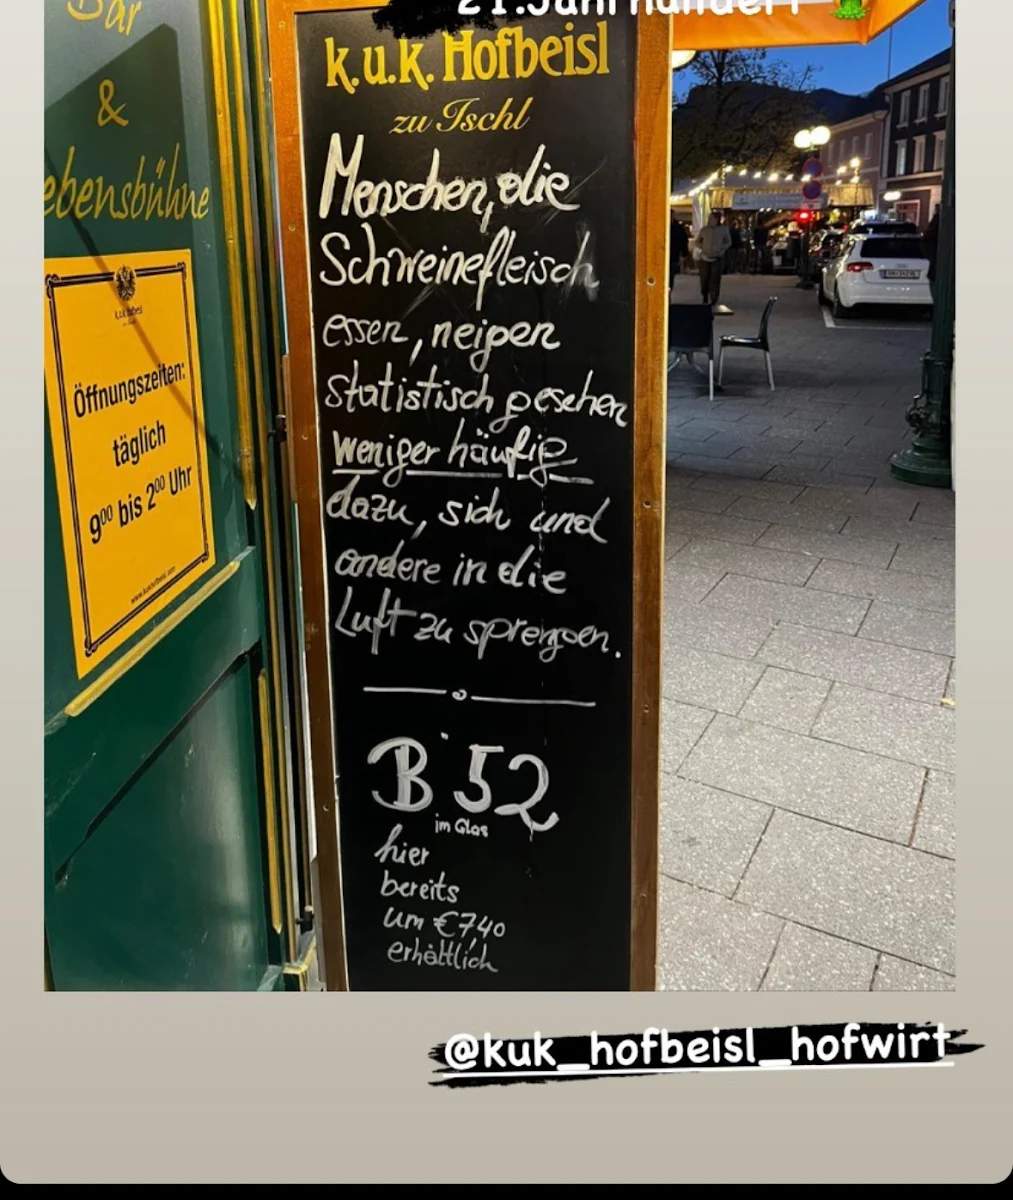 21.Jahrhundert
k.u.k. Hofbeisl
zu Ischl
Menschen, die
Schweinefleisch
essen, neigen
statistisch gesehen
weniger häufig
dazu, sich und
andere in die
Luft zu sprengen.
B 52
im Glas
hier
bereits
um €7,40
erhältlich
Bar
&
ebensbühne
k.u.k. Hofbeisl
Öffnungszeiten:
täglich
9⁰⁰ bis 2⁰⁰ Uhr
www.kukhofbeisl.com
@kuk_hofbeisl_hofwirt